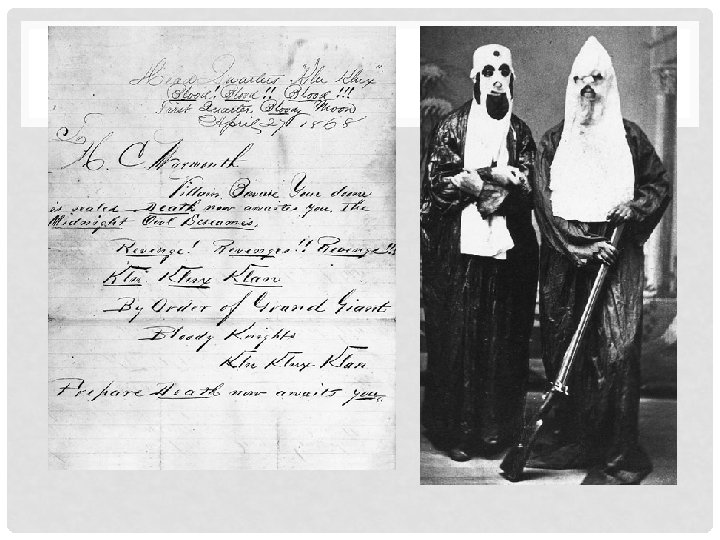 Head Quarters "Klu Klux"
Blood! Blood!! Blood!!!
First Quarter, Bloody Moon
April 27 1868
To
H. C. Warmouth
Villain Beware Your doom
is sealed Death now awaits you. The
Midnight Owl Screams,
Revenge! Revenge!! Revenge!!!
Klu Klux Klan
By Order of Grand Giant
Bloody Knights
Klu Klux Klan
Prepare Death now awaits you.